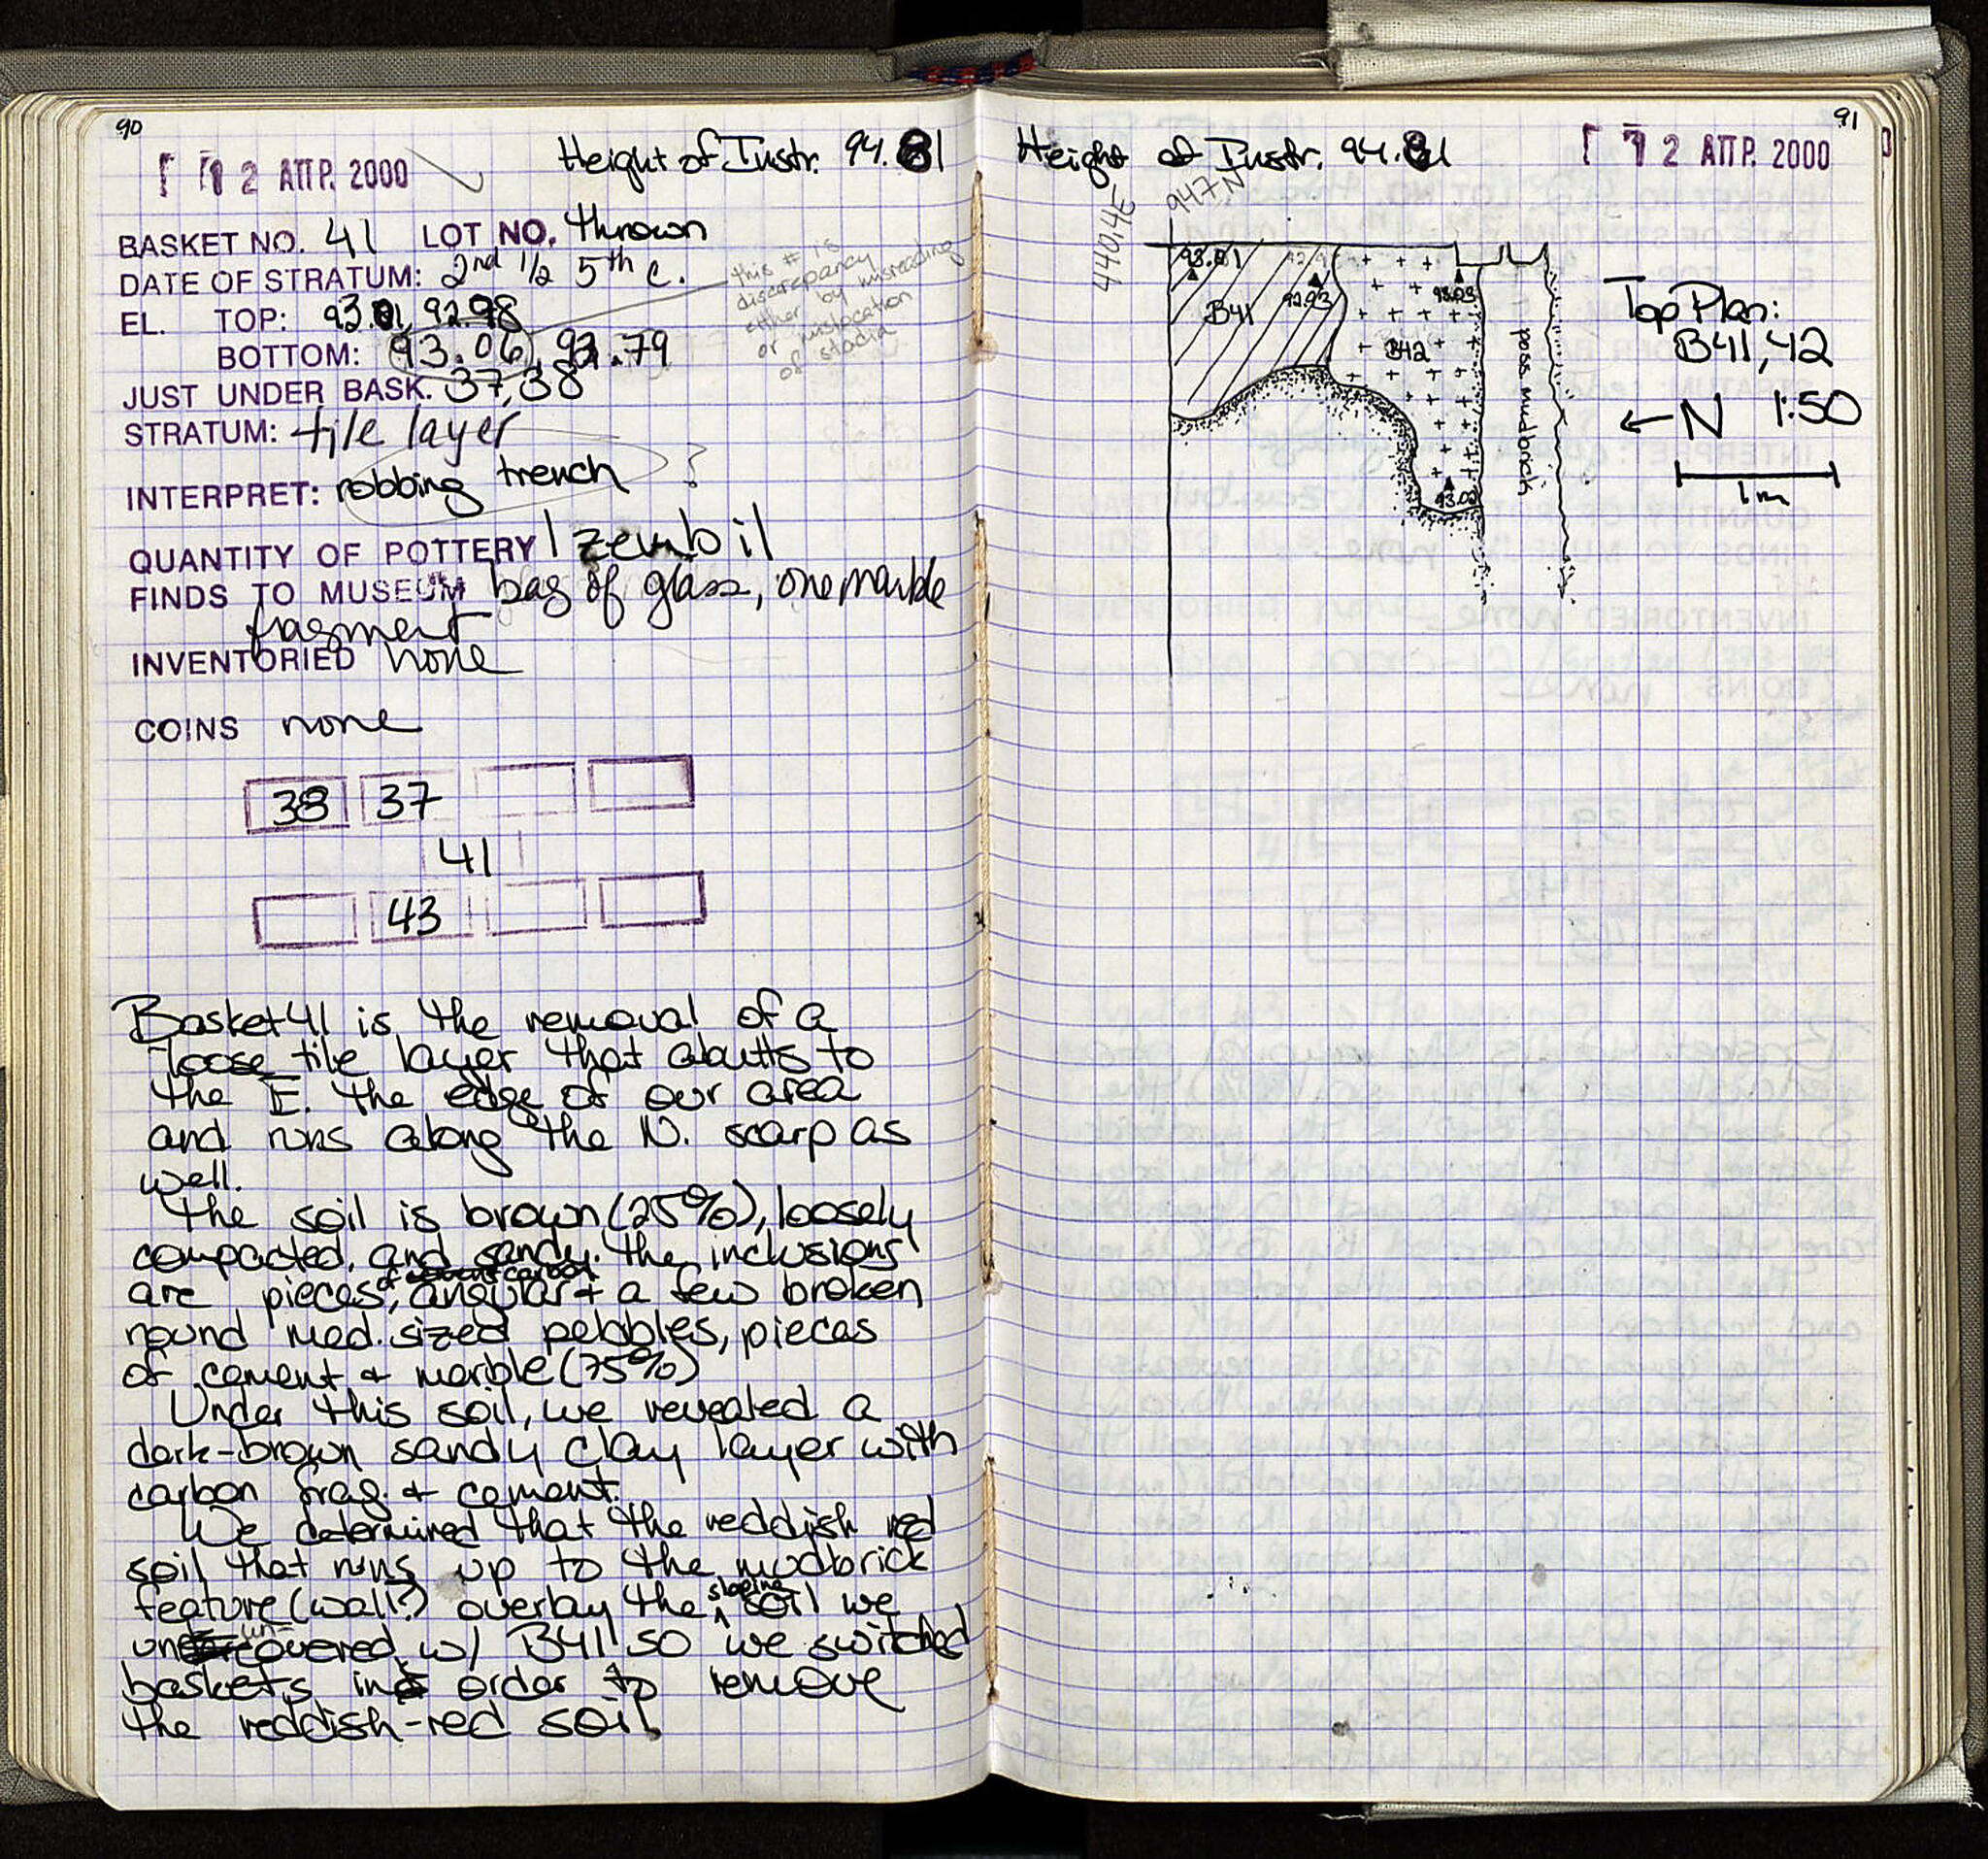 90
12 ΑΠΡ. 2000
Height of Instr. 94.81
BASKET NO. 41 LOT NO. thrown
DATE OF STRATUM: 2nd 1/2 5th c.
EL. TOP: 93.01, 92.98
BOTTOM: 93.06, 92.79
this # is
discrepancy
either by misreading
or mislocation
of stadia
JUST UNDER BASK. 37, 38
STRATUM: tile layer
INTERPRET: robbing trench ?
QUANTITY OF POTTERY 1 zembil
FINDS TO MUSEUM bag of glass, one marble
fragment
INVENTORIED none
COINS none
38 37
41
43
Basket 41 is the removal of a
loose tile layer that abutts to
the E. the edge of our area
and runs along the N. scarp as
well.
The soil is brown (25%), loosely
compacted, and sandy. The inclusions
are pieces, angular + a few broken
round med. sized pebbles, pieces
of cement + marble (75%)
Under this soil, we revealed a
dark-brown sandy clay layer with
carbon frag. + cement.
We determined that the reddish red
soil that runs up to the mudbrick
feature (wall?) overlay the sloping soil we
uncovered w/ B41 so we switched
baskets in order to remove
the reddish-red soil.
91
Height of Instr. 94.81
12 ΑΠΡ. 2000
440.4E
947N
93.01
B41
92.93
93.03
B42
93.02
poss. mudbrick
Top Plan:
B41, 42
←N 1:50
1m